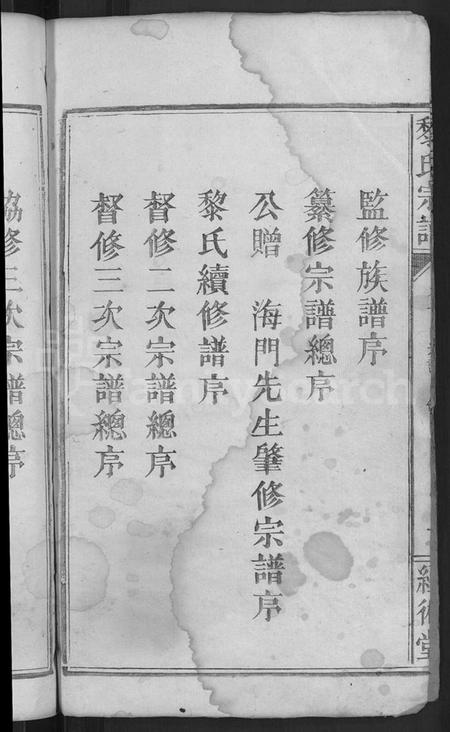 黎氏宗譜
經術堂
監修族譜序
纂修宗譜總序
公贈　海門先生肇修宗譜序
黎氏續修譜序
督修二次宗譜總序
督修三次宗譜總序
協修三次宗譜總序